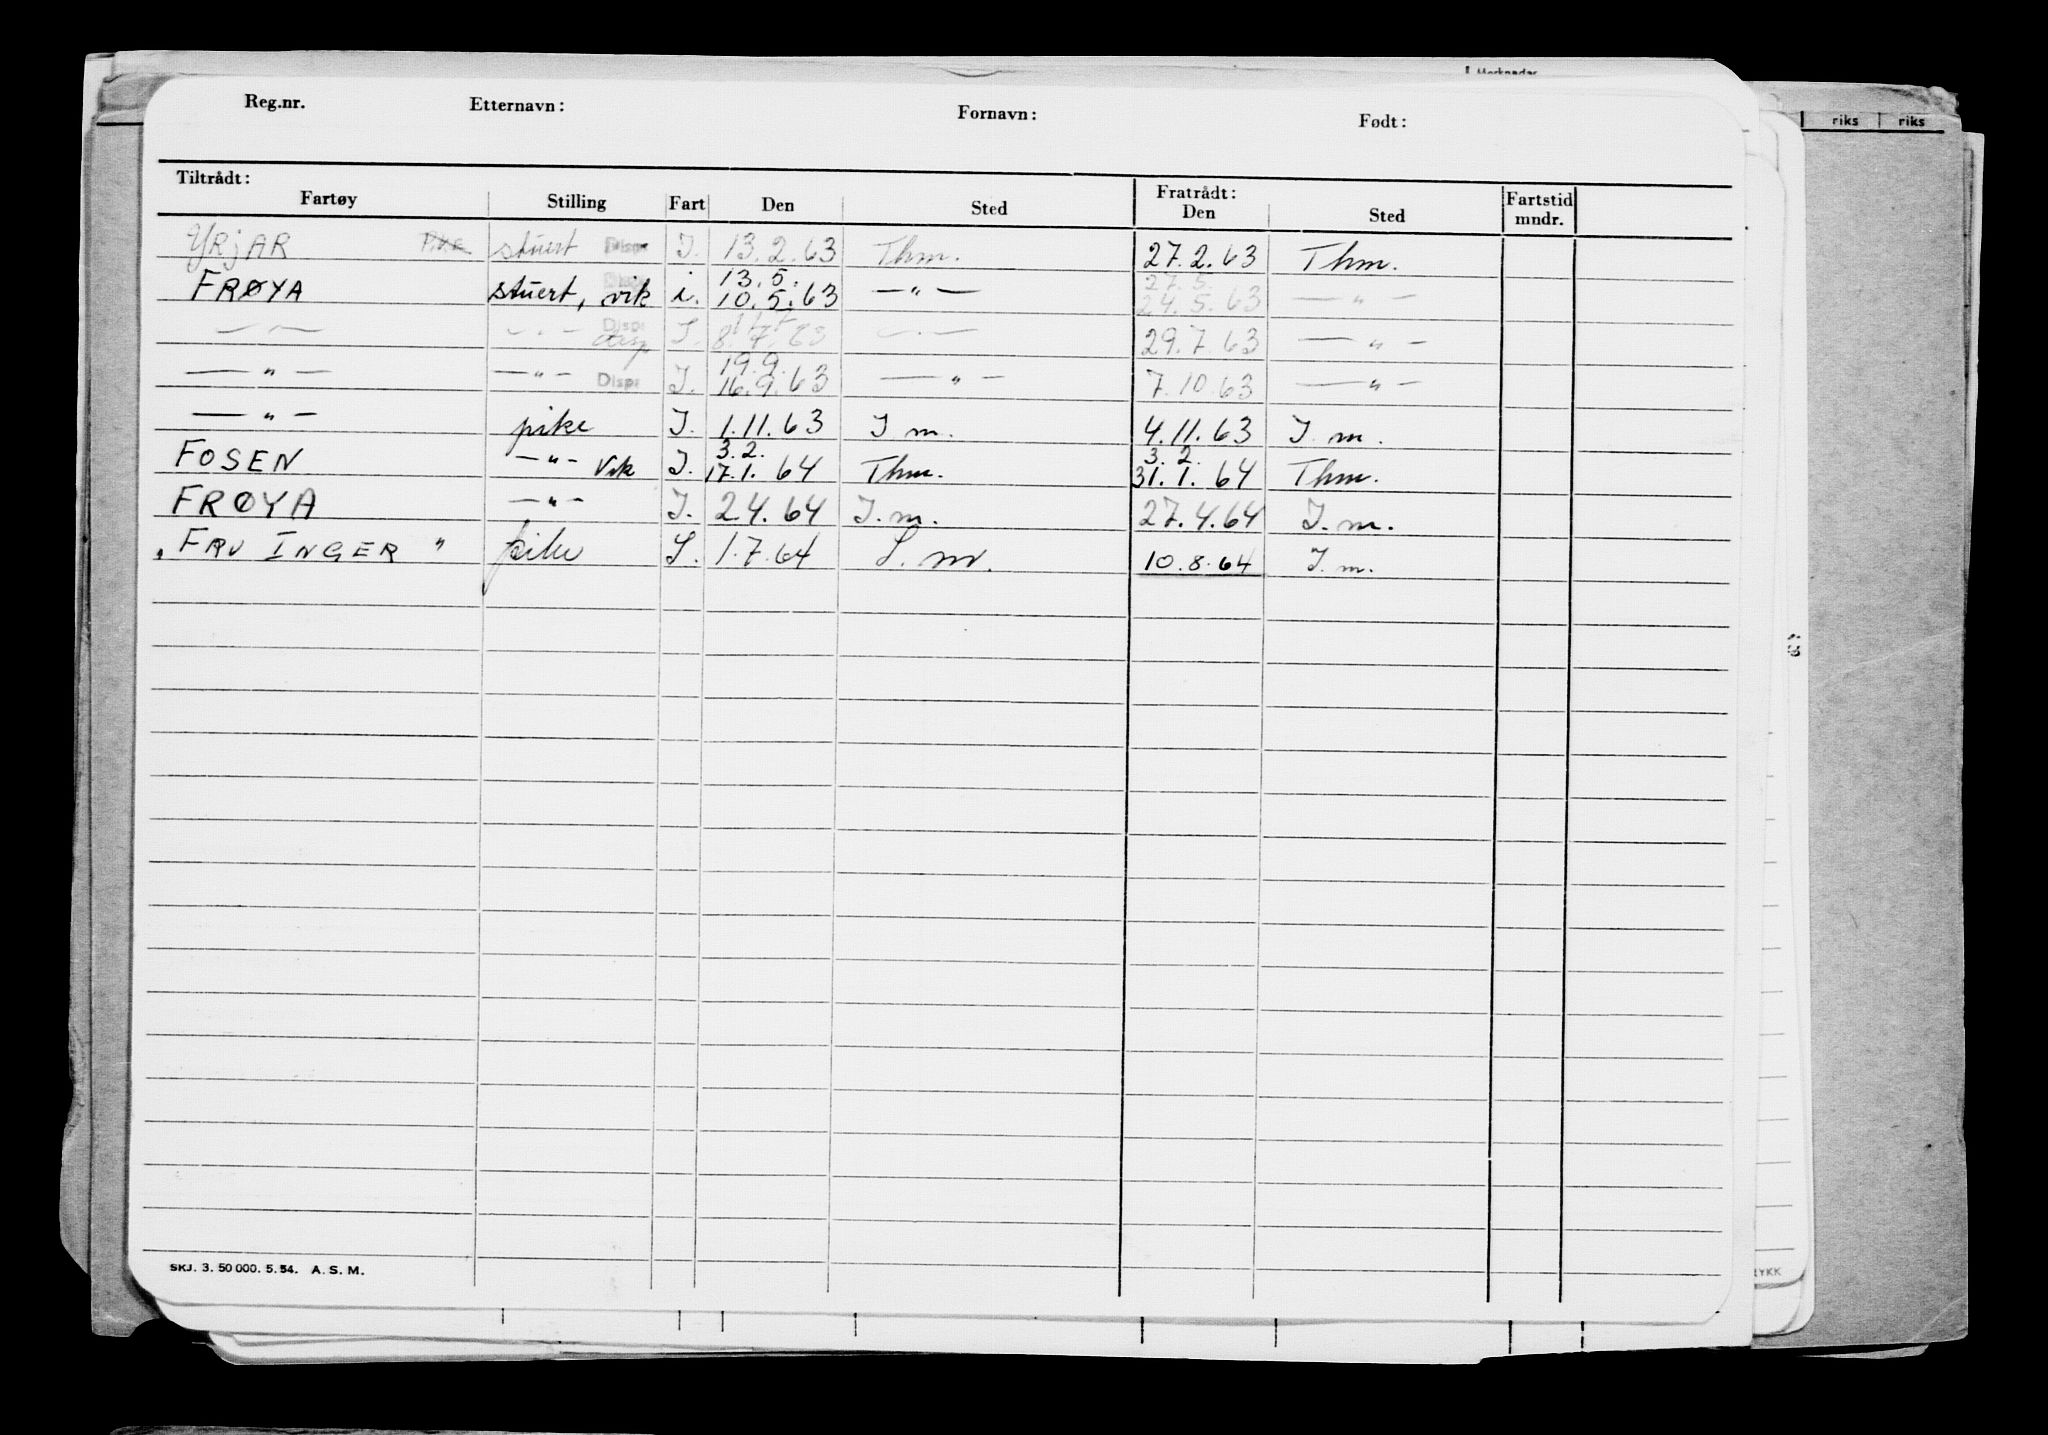 Merknader
riks riks
Reg.nr. Etternavn: Fornavn: Født:
Tiltrådt: Fratrådt:
Fartøy Stilling Fart Den Sted Den Sted Fartstid mndr.
YRJAR stuert Disp. I. 13.2.63 Thm. 27.2.63 Thm.
13.5. 27.5.
FRØYA stuert, vik i. 10.5.63 — " — 24.5.63 — " —
— " — — " — Disp. I. 8.7.63 — " — 29.7.63 — " —
19.9.
— " — — " — Disp. I. 16.9.63 — " — 7.10.63 — " —
— " — pike I. 1.11.63 I m. 4.11.63 I. m.
3.2. 3.2.
FOSEN — " — Vik I. 17.1.64 Thm. 31.1.64 Thm.
FRØYA — " — I. 2.4.64 I. m. 27.4.64 I. m.
"FRU INGER" pike I. 1.7.64 I. m. 10.8.64 I. m.
SKJ. 3. 50 000. 5. 54. A. S. M.